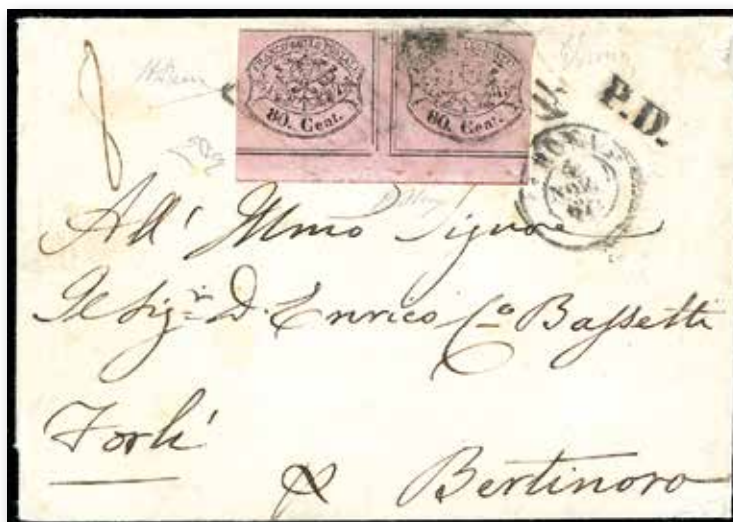 FRANCO BOLLO POSTALE
80. Cent. 80. Cent.
P.D.
ROMA
NOV.
All' Illmo Signore
Il Sigr. D. Enrico Co. Bassetti
Forlì
Bertinoro